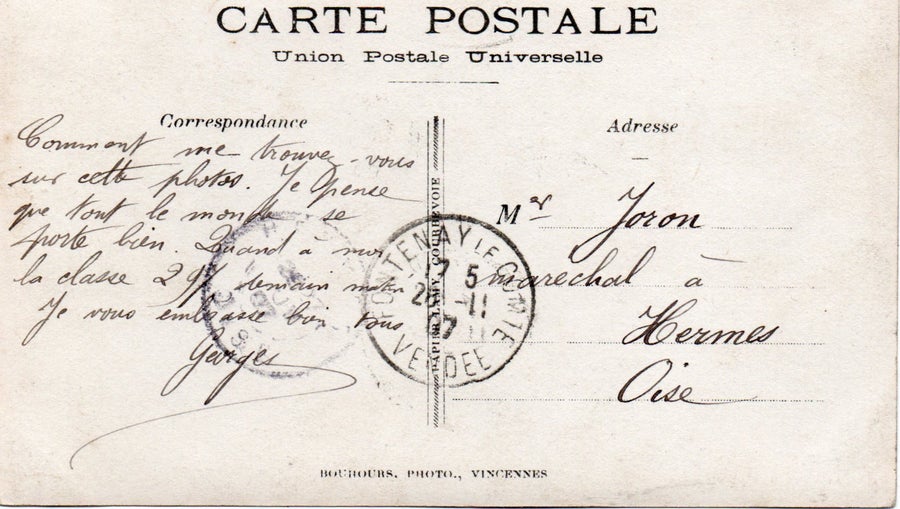 CARTE POSTALE
Union Postale Universelle
Correspondance
Comment me trouvez-vous
sur cette photos. Je pense
que tout le monde se
porte bien. Quand à moi
la classe 297 demain matin
Je vous embrasse bien tous
Georges
PAPIER LAMY COURBEVOIE
FONTENAY LE COMTE
17 5
26 11
07
VENDÉE
Adresse
Mr Joron
marechal à
Hermes
Oise
BOUHOURS, PHOTO., VINCENNES